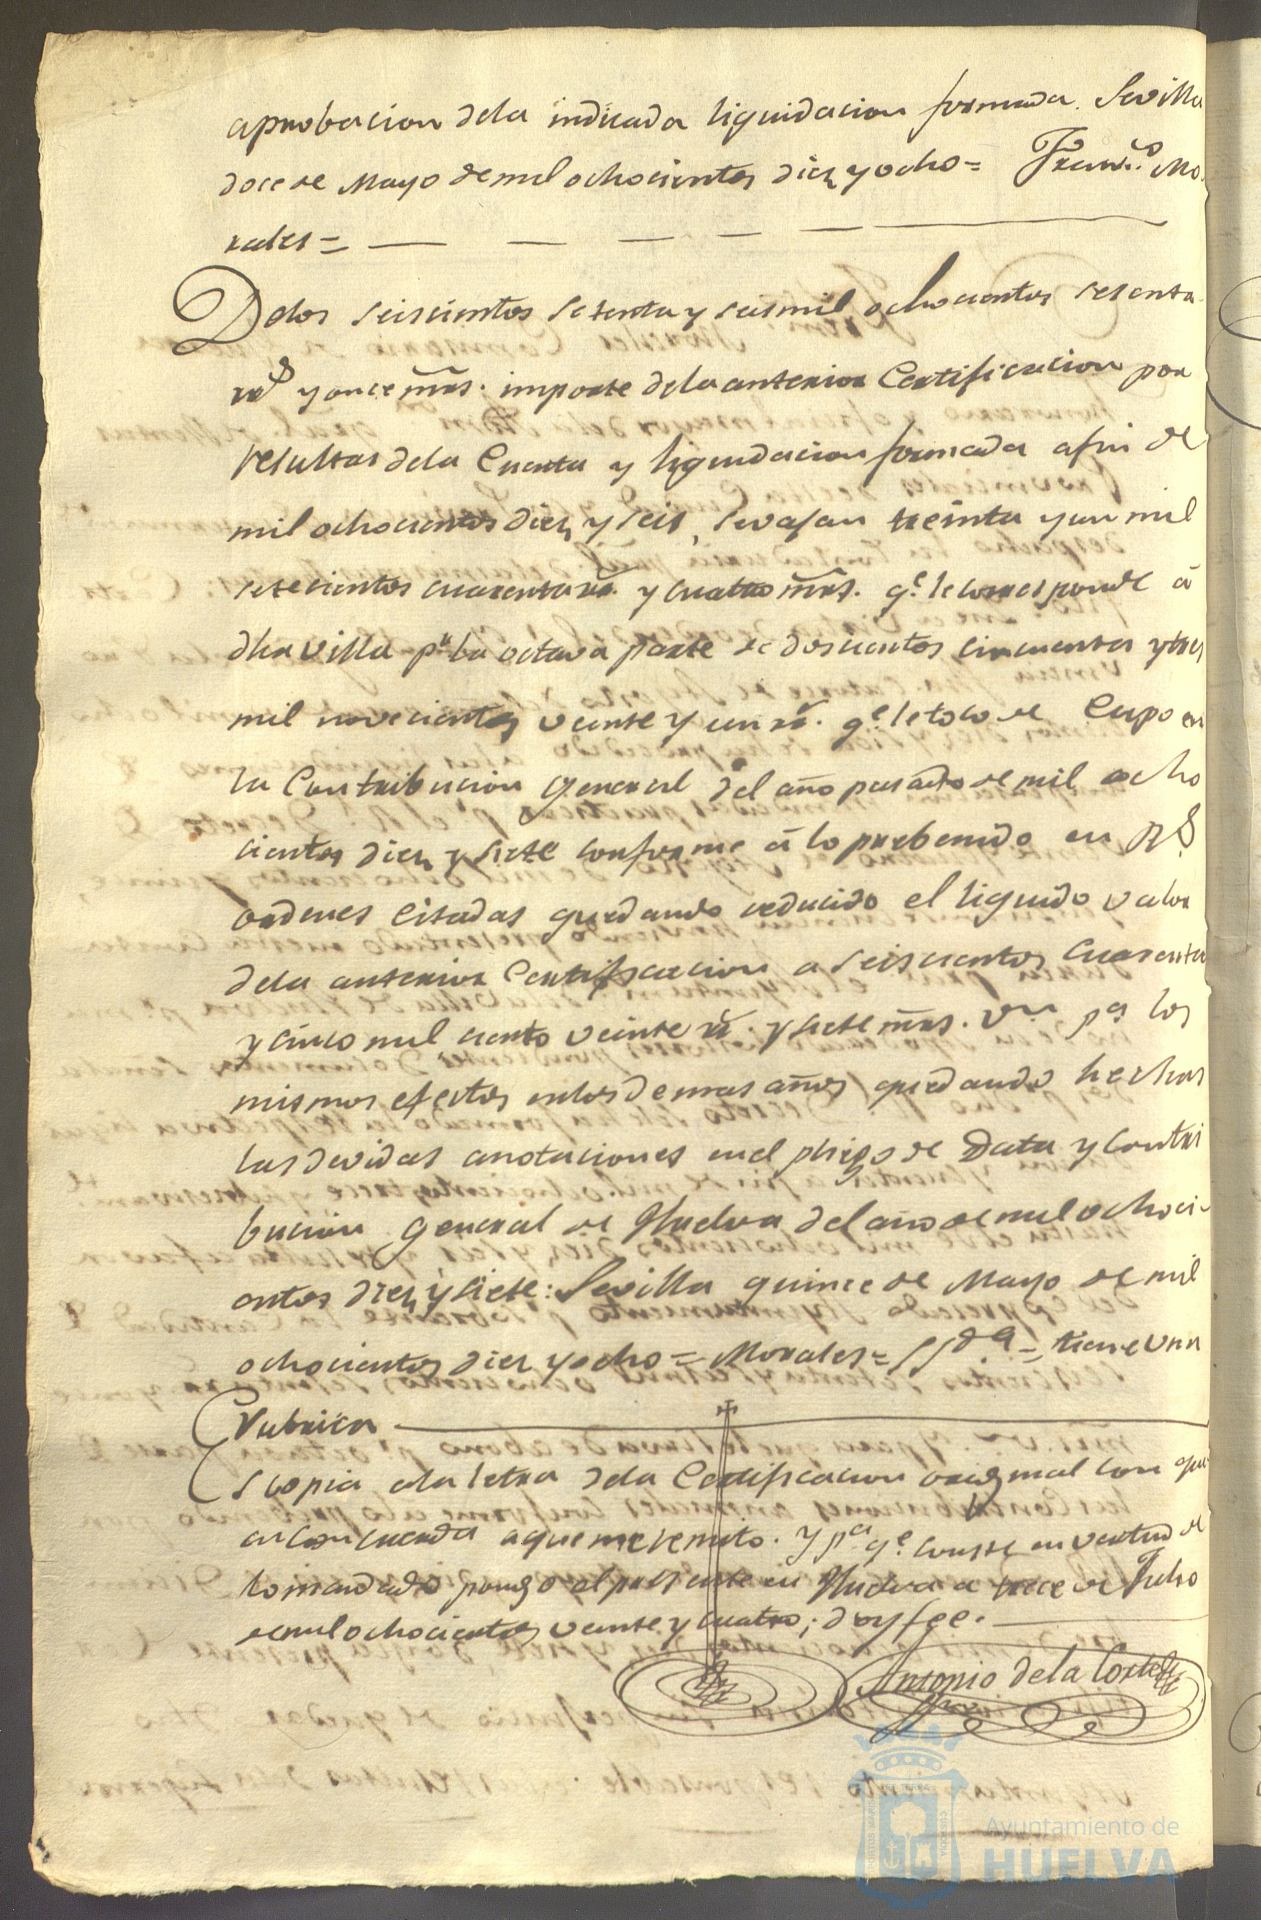 aprobacion dela indicada liquidacion formada. Sevilla
doce de Mayo de mil ochocientos diez y ocho = Franco. Mo-
rales =
Delos seiscientos setenta y seis mil ochocientos sesenta
rs. y once mrs. importe dela anterior Certificacion por
resultas dela Cuenta y liquidacion formada a fin de
mil ochocientos diez y seis, se vajan treinta y un mil
setecientos cuarenta rs. y cuatro mrs. qe. le corresponde á
dha villa pr. la octava parte de doscientos cincuenta y tres
mil novecientos veinte y un rs. qe. le toco de Cupo en
la Contribucion general del año pasado de mil ocho
cientos diez y siete conforme á lo prebenido en Rs.
ordenes citadas quedando reducido el liquido valor
dela anterior Certificacion a seiscientos cuarenta
y cinco mil ciento veinte rs. y siete mrs. Vn. pa. los
mismos efectos enlos demas años, quedando hechas
las devidas anotaciones en el pliego de Data y Contri
bucion general de Huelva del año de mil ochoci-
entos diez y siete: Sevilla quince de Mayo de mil
ochocientos diez y ocho = Morales = = tiene una
rubrica
Es copia ala letra dela Certificacion original con que
concuerda a que me remito. y pa. qe. conste en virtud de
lo mandado pongo el presente en Huelva a trece de Julio
de mil ochocientos veinte y cuatro; doy fee.
Antonio dela Corte
Ayuntamiento de
HUELVA